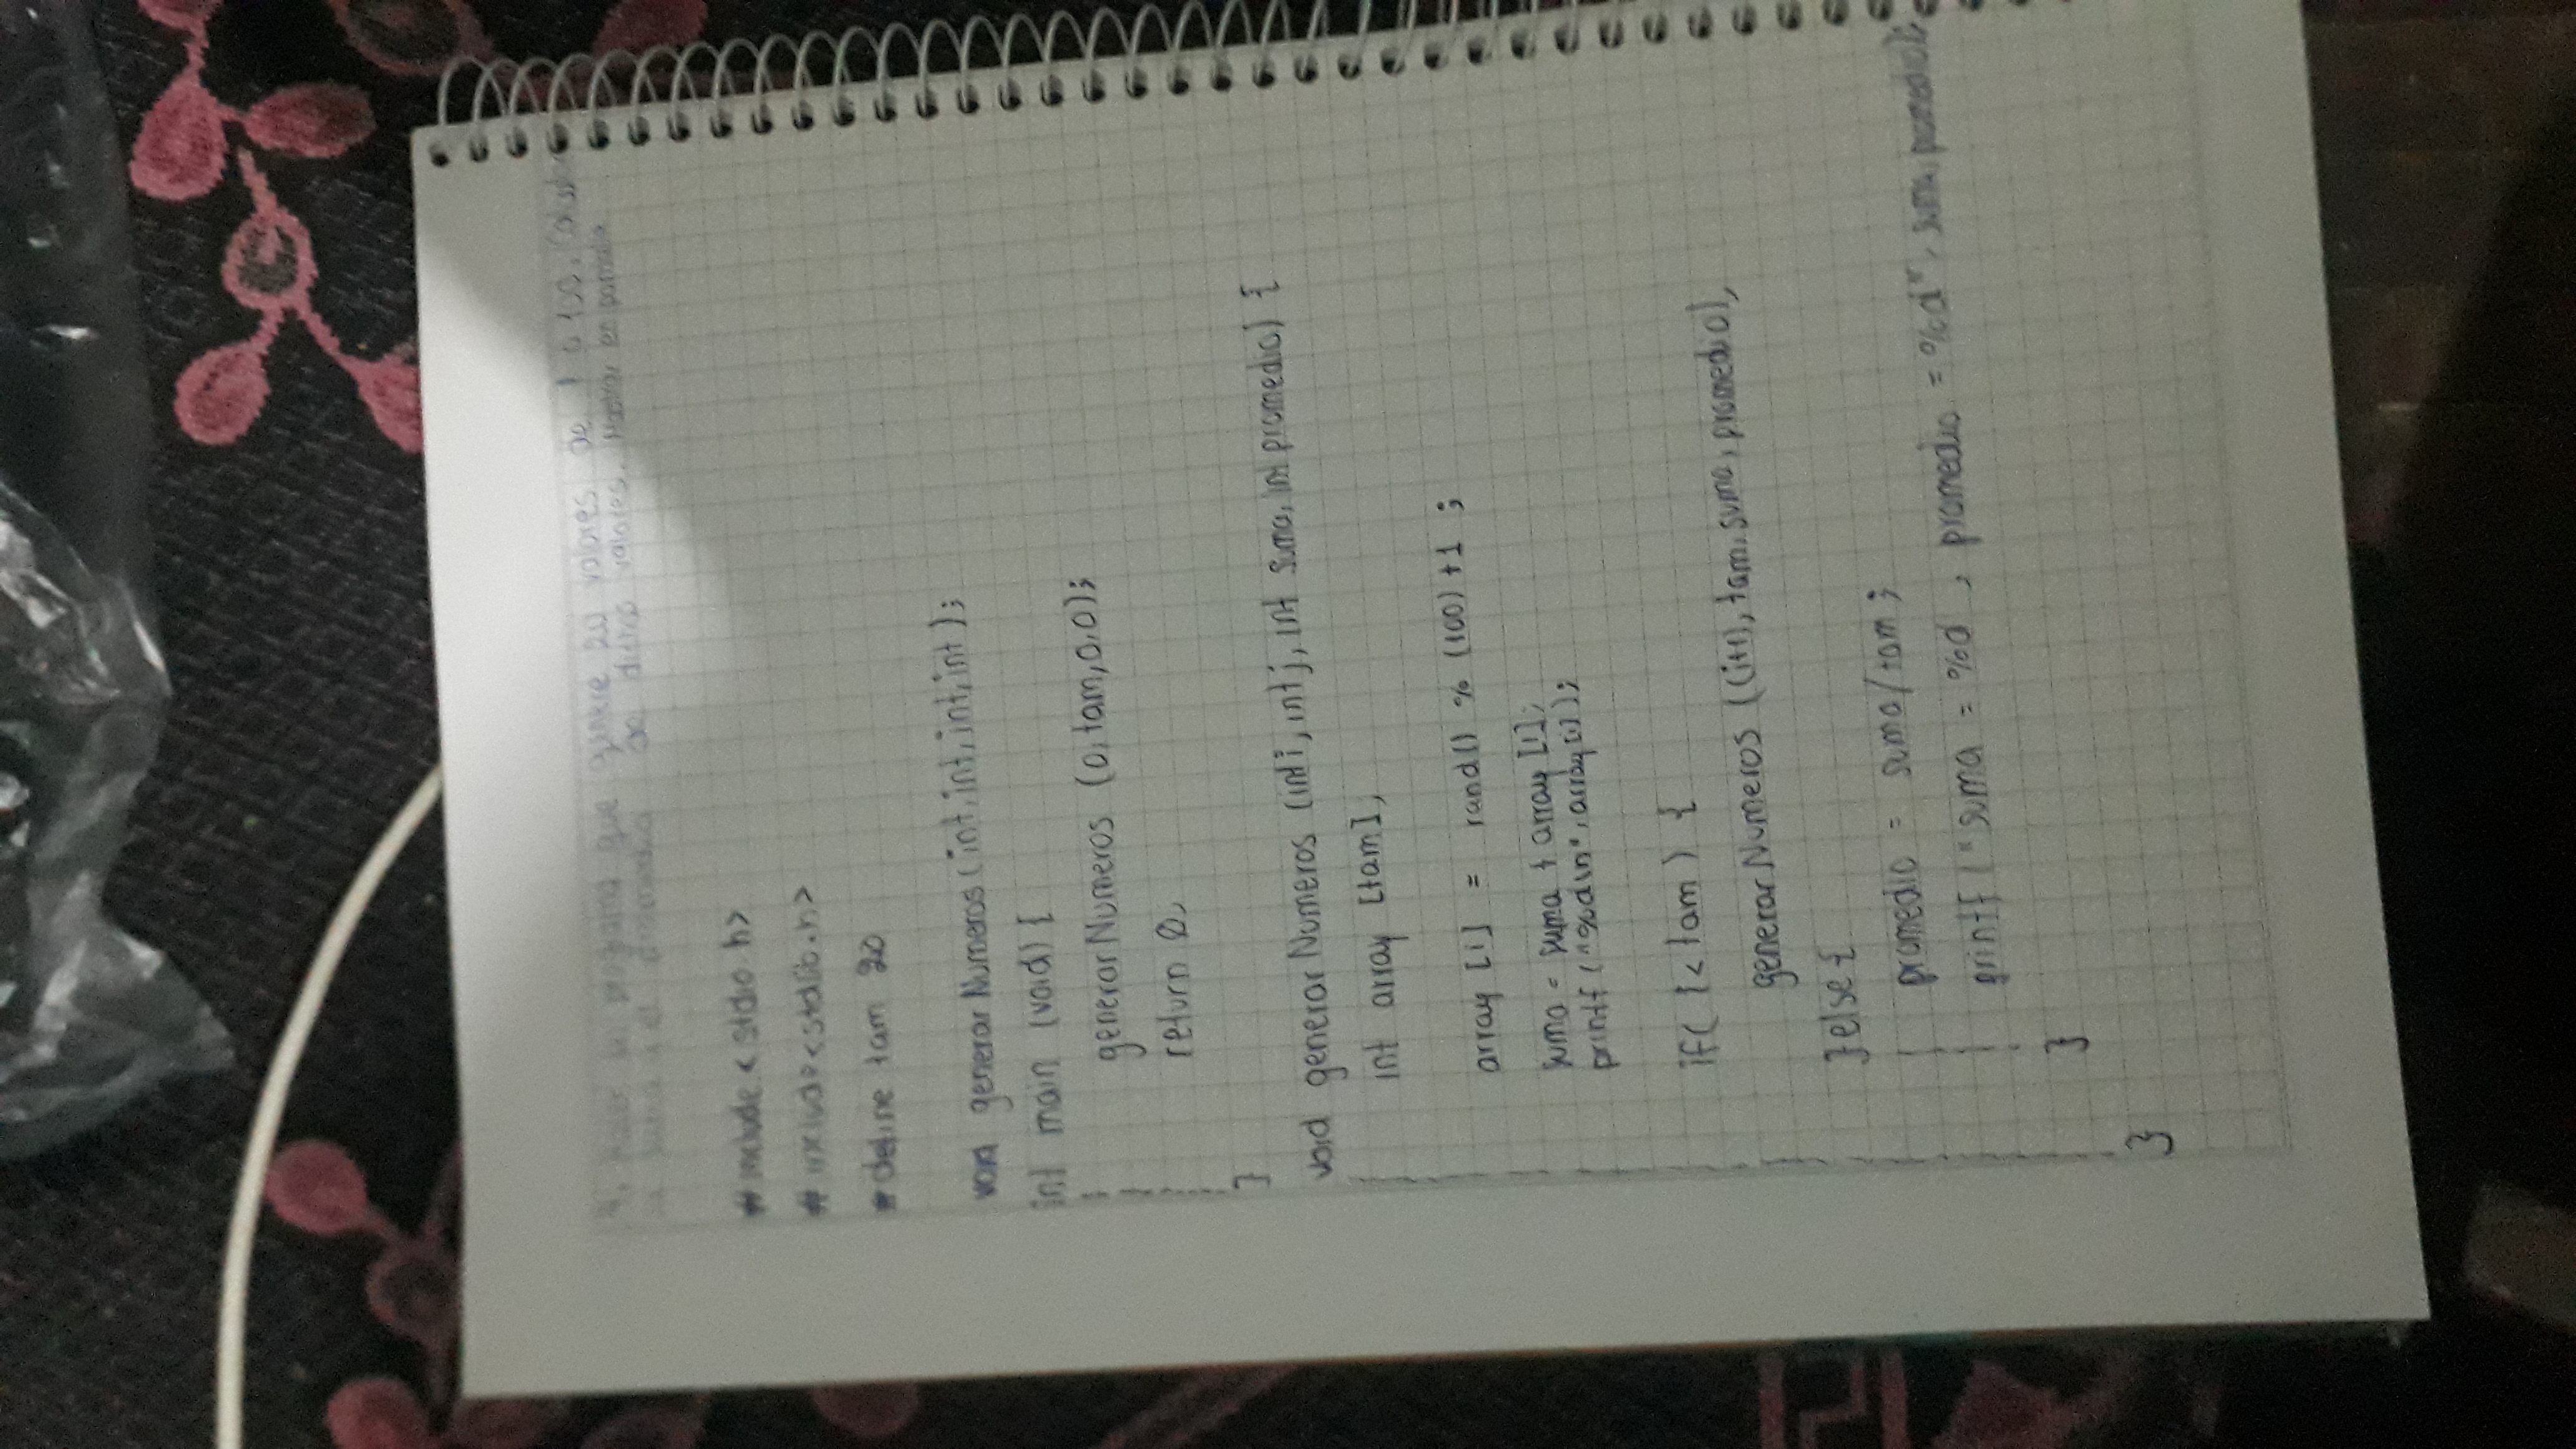 4. Hacer un programa que genere 20 valores de 1 a 100. Calcular
la suma y el promedio de dichos valores. Mostrar en pantalla
#include <stdio.h>
#include <stdlib.h>
#define tam 20
void generarNumeros(int, int, int, int);
int main (void) {
generarNumeros (0, tam, 0, 0);
return 0;
}
void generarNumeros (int i, int j, int suma, int promedio) {
int array [tam];
array [i] = rand() % (100) + 1 ;
suma = suma + array [i];
printf ("%d\n", array[i]);
if( i < tam ) {
generarNumeros ((i+1), tam, suma, promedio);
} else {
promedio = suma/tam ;
printf ("suma = %d , promedio = %d", suma, promedio);
}
}